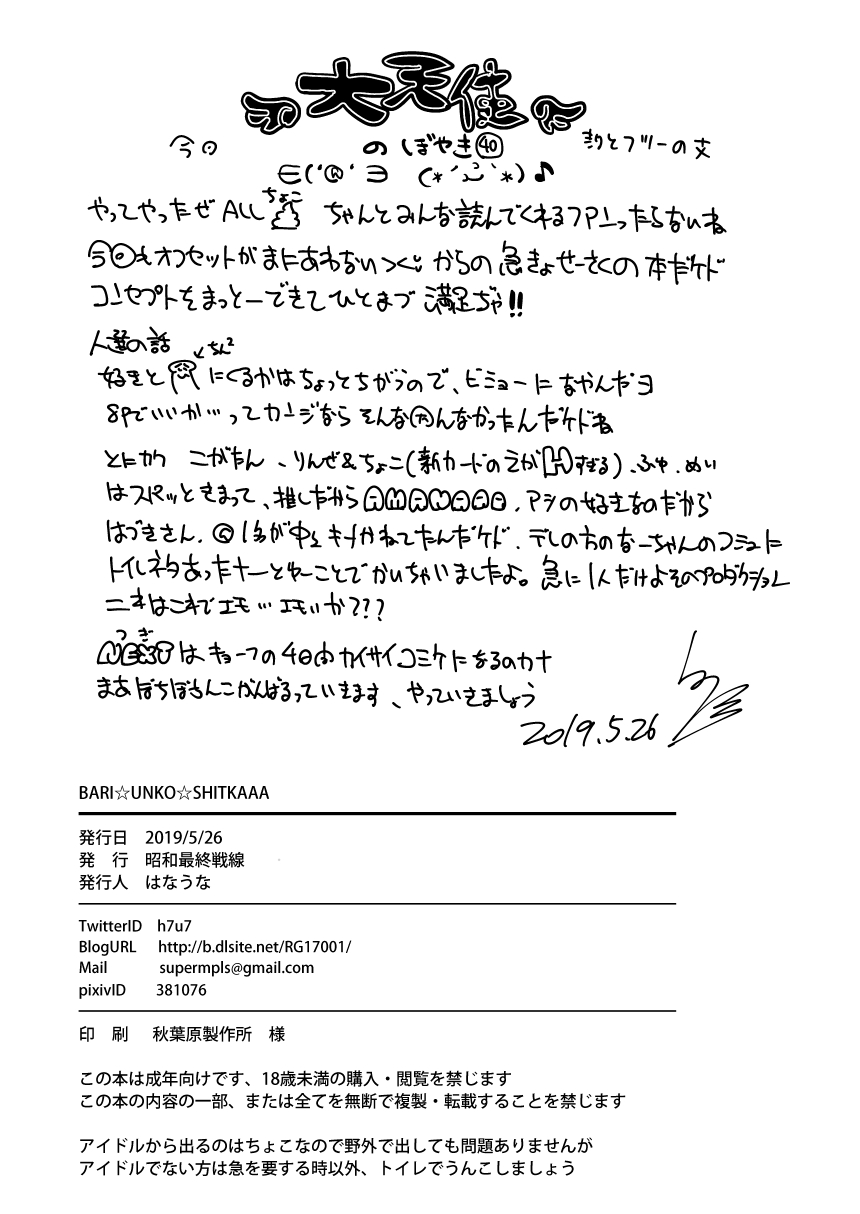 大天使
今日 のぼやき㊵ きりとフツーの文
∈('®'∋ (*´ `*)♪
ちょこ
やってやったぜALL ちゃんとみんな読んでくれるファンったらないね
今回もオフセットがまにあわない からの急きょせーさくの本だケド
コンセプトをまっとーできてひとまづ満足ぢゃ!!
人選の話
ちん²
好きと にくるかはちょっとちがうので、ビミョーになやんだヨ
8Pでいいか…ってカンジなら そんな んなかったんだケドね
とにかく こがたん、りんぜ&ちょこ(新カードのえがHすぎる)、ふゆ、めい
はスパッときまって、推しだからAMANAAA、アシの好きなのだから
はづきさん、 キメかねてたんだケド、デレの方のなーちゃんのコミュに
トイレネタあったナーとゆーことでかいちゃいましたよ。急に1人だけよそのプロダクション
ニオはこれでエモ…エモいか???
つぎ
NEXTは、キョーフの4日間カイサイコミケになるのカナ
まあぼちぼちんこがんばるっていきます、やっていきましょう
2019.5.26
BARI☆UNKO☆SHITKAAA
発行日 2019/5/26
発 行 昭和最終戦線
発行人 はなうな
TwitterID h7u7
BlogURL http://b.dlsite.net/RG17001/
Mail supermpls@gmail.com
pixivID 381076
印 刷 秋葉原製作所 様
この本は成年向けです、18歳未満の購入・閲覧を禁じます
この本の内容の一部、または全てを無断で複製・転載することを禁じます
アイドルから出るのはちょこなので野外で出しても問題ありませんが
アイドルでない方は急を要する時以外、トイレでうんこしましょう